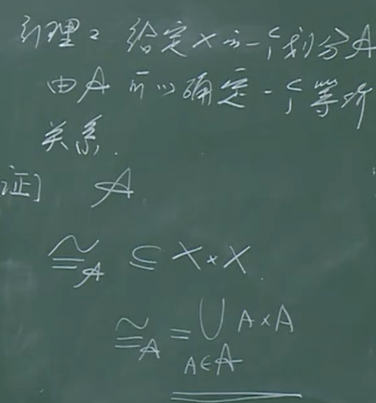 引理2 给定X的一个划分𝒜
由𝒜可以确定一个等价
关系.
证] 𝒜
≅_𝒜 ⊆ X×X.
≅_𝒜 = ⋃_{A∈𝒜} A×A